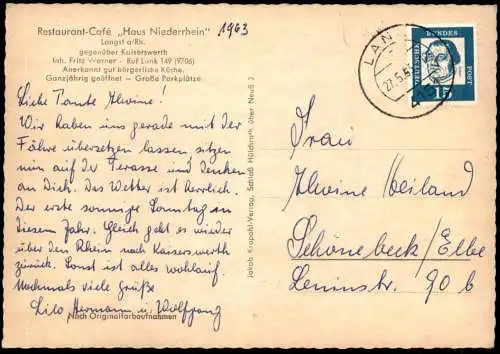 Restaurant-Café „Haus Niederrhein"
Langst a/Rh.
gegenüber Kaiserswerth
Inh. Fritz Werner - Ruf Lank 149 (9706)
Anerkannt gut bürgerliche Küche.
Ganzjährig geöffnet — Große Parkplätze
1963
Liebe Tante Alwine!
Wir haben uns gerade mit der
Fähre übersetzen lassen sitzen
nun auf der Terasse und denken
an Dich. Das Wetter ist herrlich.
Der erste sonnige Sonntag in
diesem Jahr. Gleich geht es wieder
über den Rhein nach Kaiserswerth
zurück. Sonst ist alles wohlauf.
Nochmals viele Grüße
Lilo, Hermann u. Wolfgang
Nach Originalfarbaufnahmen
Jakob Krapohl-Verlag, Schloß Hülchrath über Neuß 2
LAN
27.5.63
DEUTSCHE BUNDES POST
15
Frau
Alwine Weiland
Schönebeck/Elbe
Leninstr. 90 b